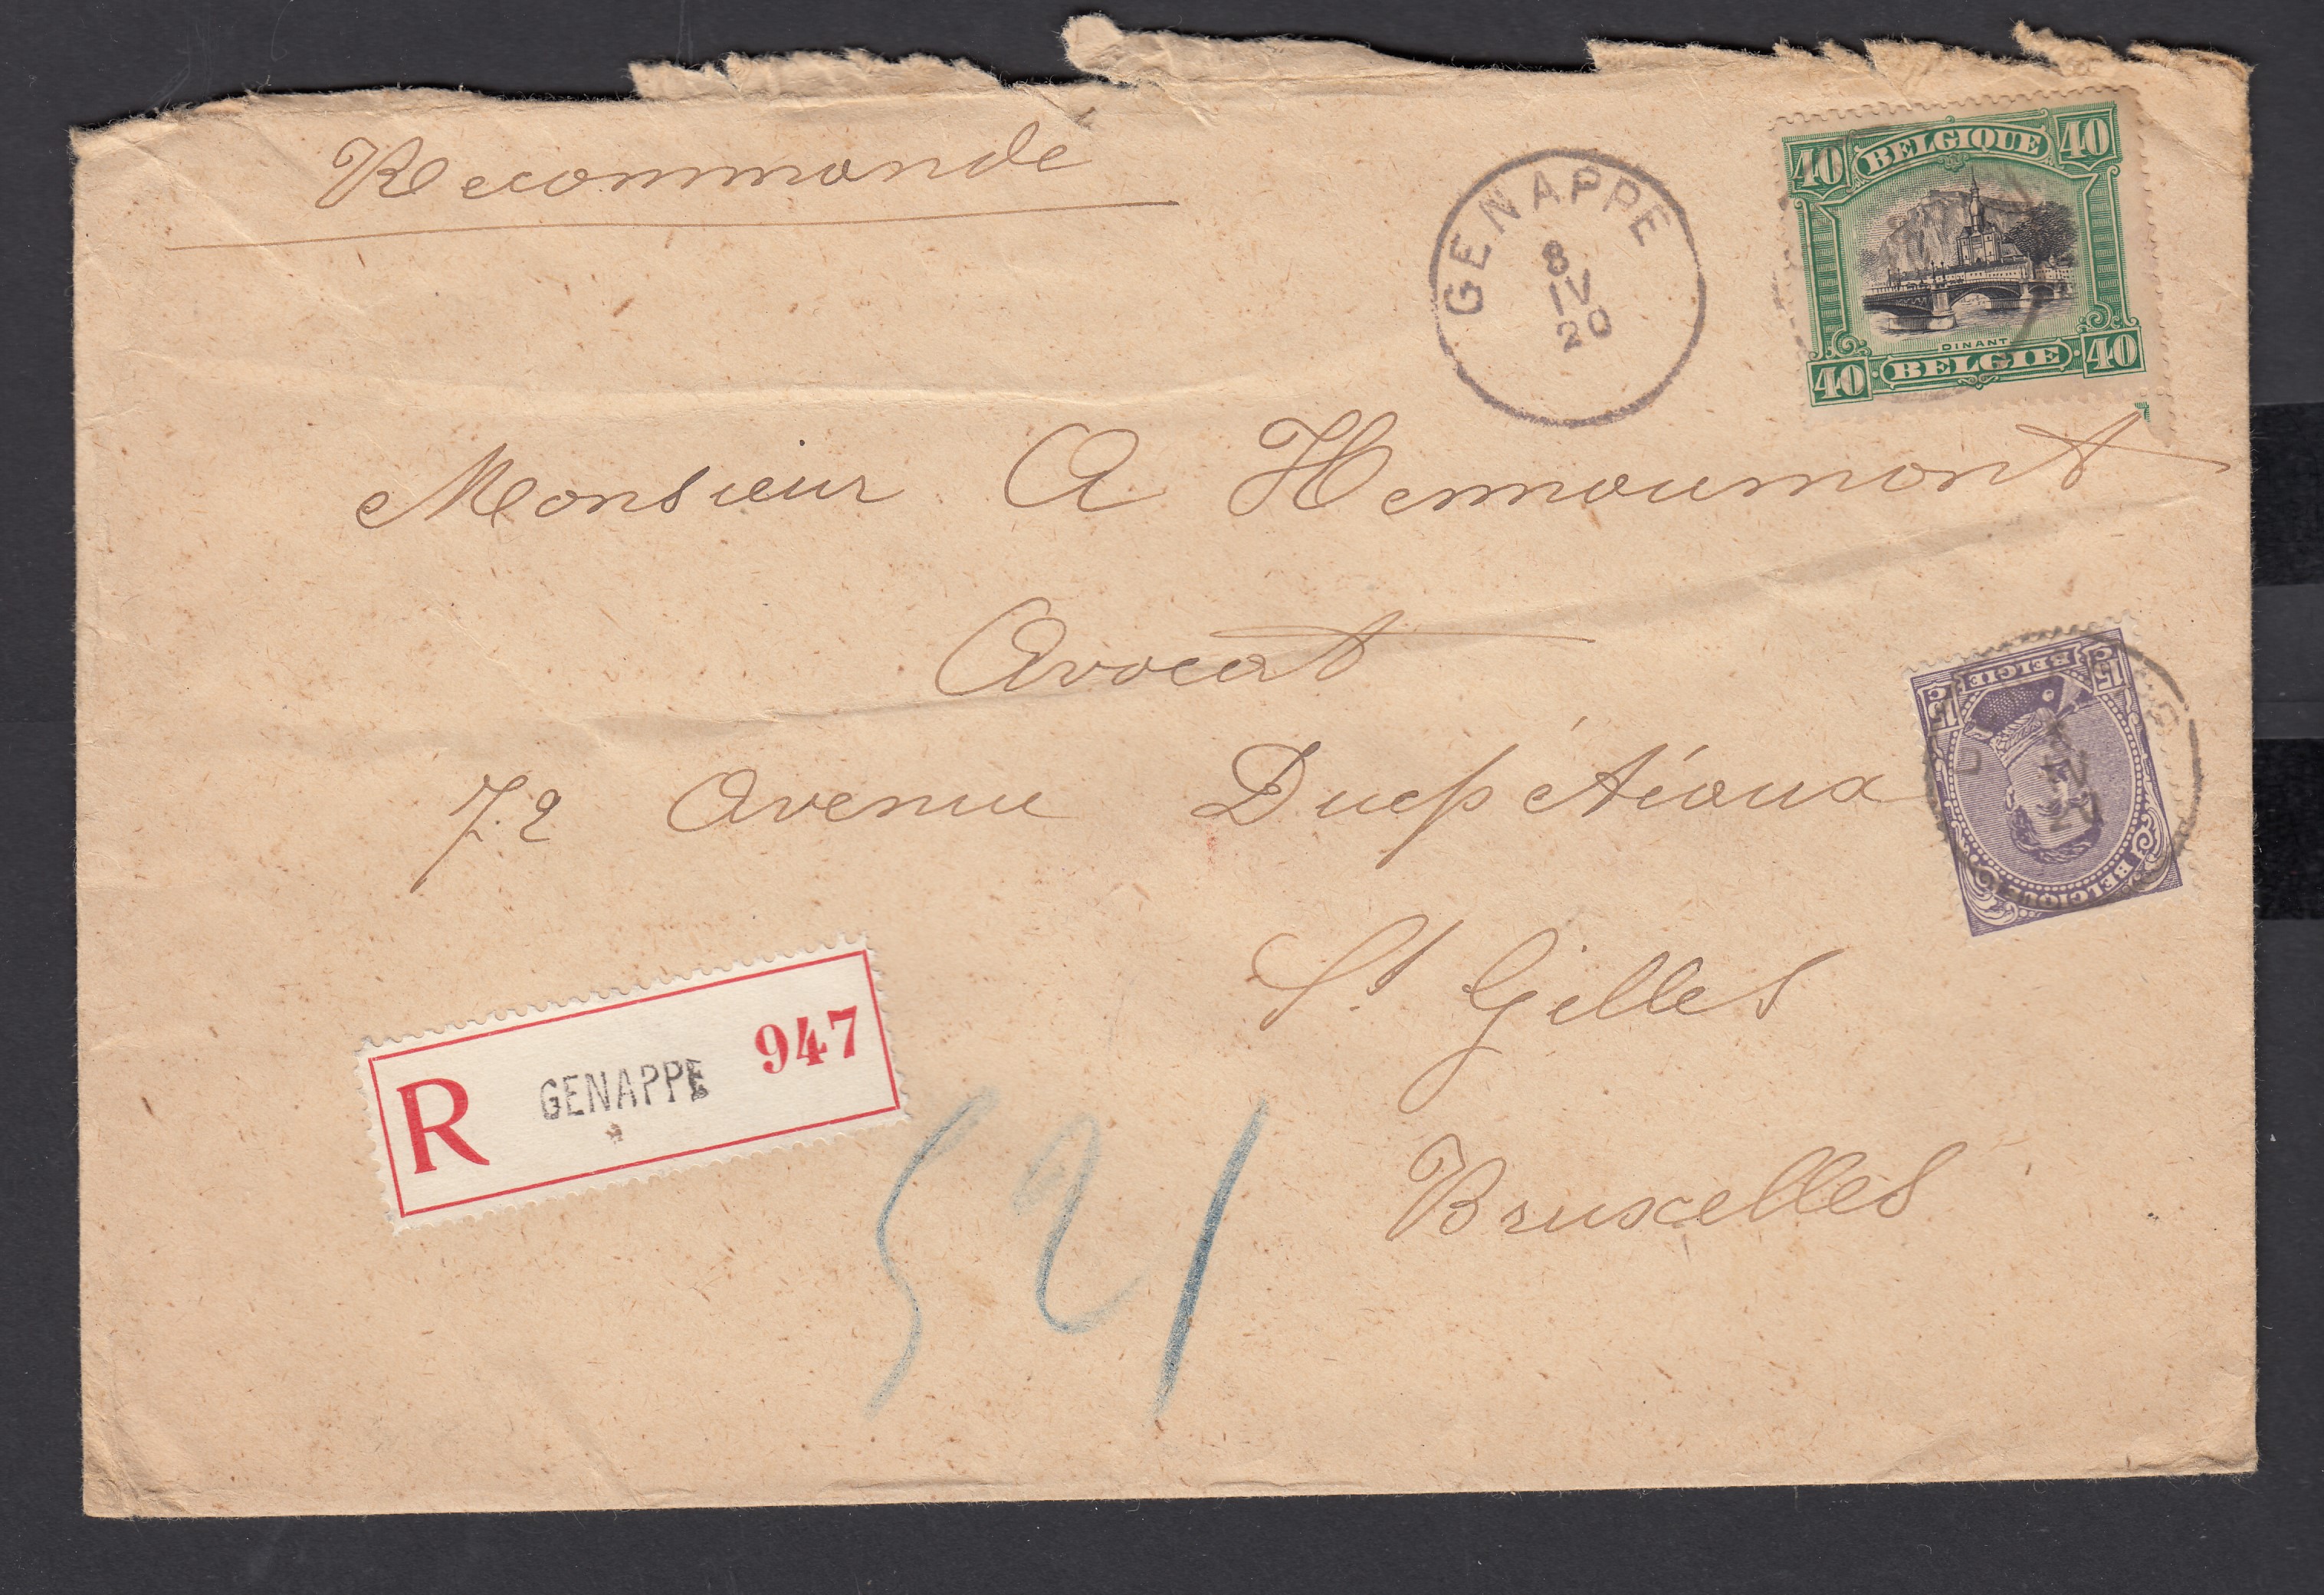 Recommande
GENAPPE
8
IV
20
40 BELGIQUE 40
DINANT
40 BELGIE 40
Monsieur A Hennoumont
Avocat
72 Avenue Ducpétiaux
St Gilles
Bruxelles
15c BELGIE 15c
BELGIQUE
R GENAPPE 947
521